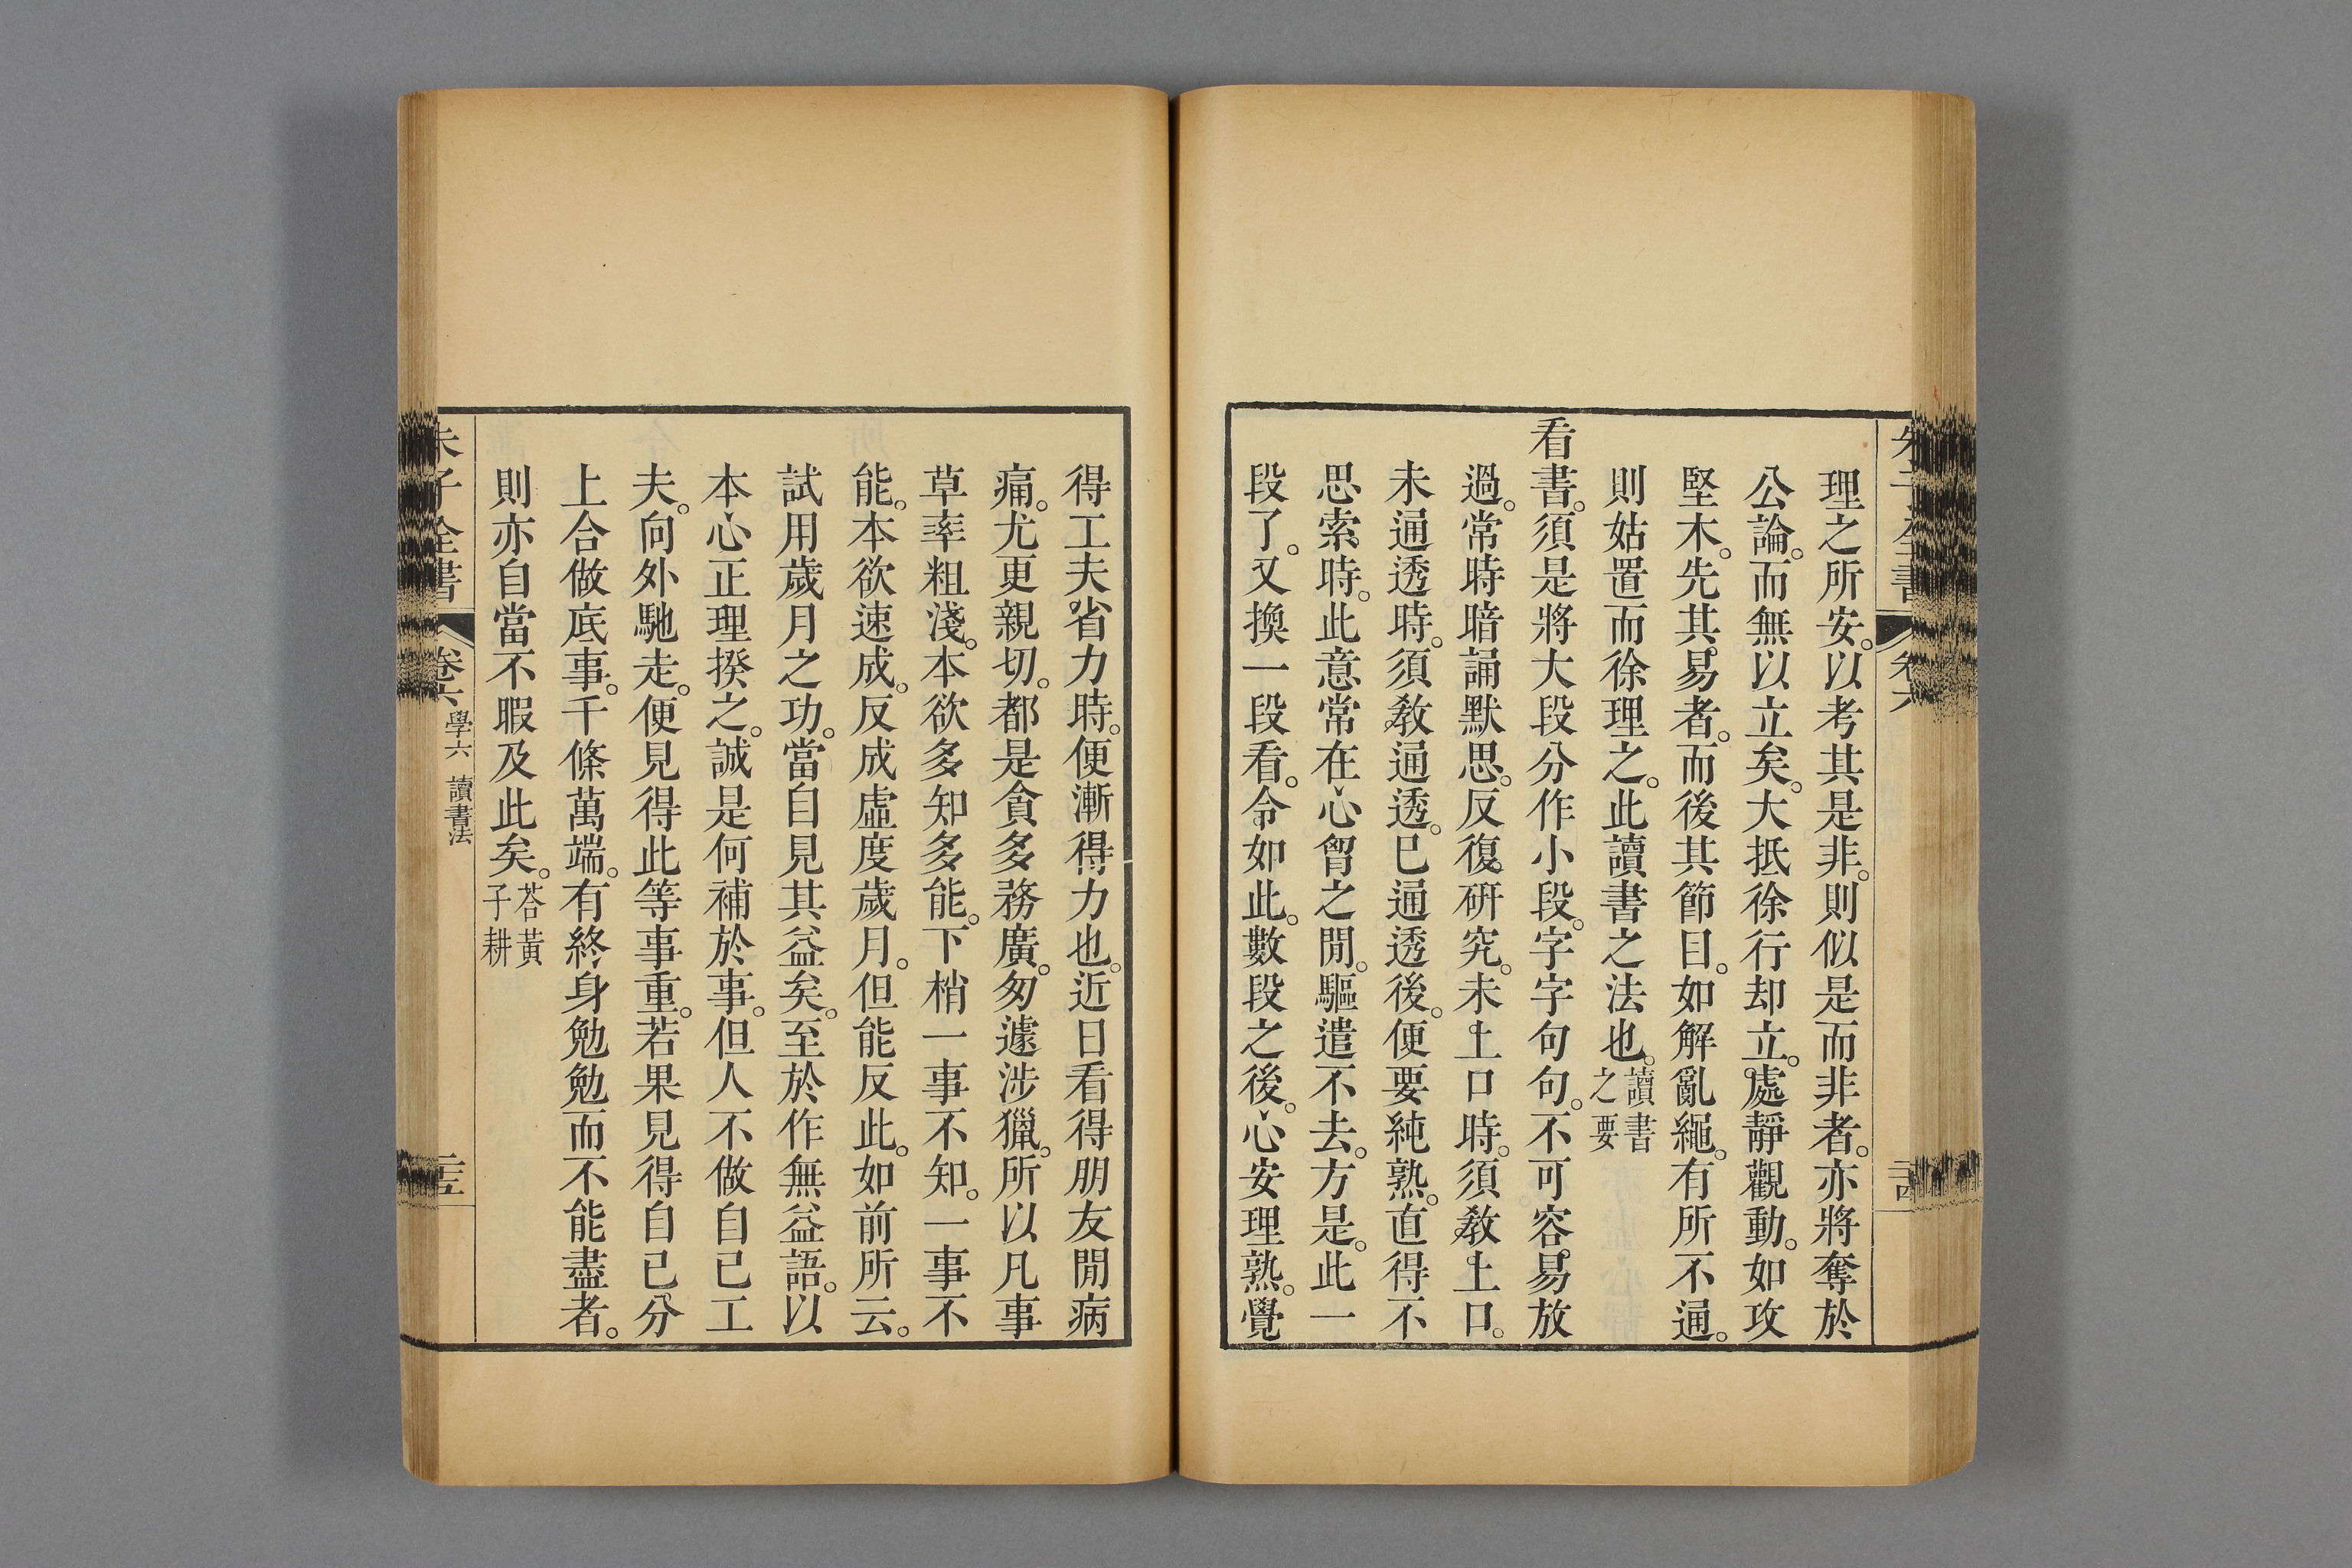 朱子全書 卷六 二十四
理之所安。以考其是非。則似是而非者。亦將奪於
公論。而無以立矣。大抵徐行却立。處靜觀動。如攻
堅木。先其易者。而後其節目。如解亂繩。有所不通。
則姑置而徐理之。此讀書之法也。讀書之要
看書。須是將大段分作小段。字字句句。不可容易放
過。常時暗誦默思。反復研究。未上口時。須敎上口。
未通透時。須敎通透。已通透後。便要純熟。直得不
思索時。此意常在心胷之閒。驅遣不去。方是。此一
段了。又換一段看。令如此。數段之後。心安理熟。覺
得工夫省力時。便漸得力也。近日看得朋友閒病
痛。尤更親切。都是貪多務廣。匆遽涉獵。所以凡事
草率粗淺。本欲多知多能。下梢一事不知。一事不
能。本欲速成。反成虛度歲月。但能反此。如前所云。
試用歲月之功。當自見其益矣。至於作無益語。以
本心正理揆之。誠是何補於事。但人不做自已工
夫。向外馳走。便見得此等事重。若果見得自已分
上合做底事。千條萬端。有終身勉勉而不能盡者。
則亦自當不暇及此矣。荅黃子耕
朱子全書 卷六 學六 讀書法 二十五